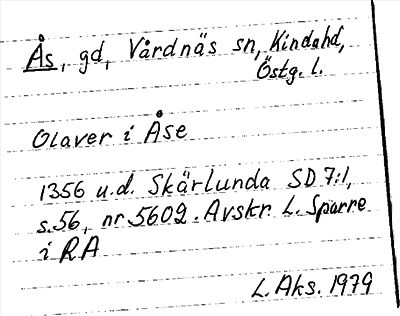 Ås, gd, Vårdnäs sn, Kindahd,
Östg. l.
Olaver i Åse
1356 u.d. Skärlunda SD 7:1,
s.56, nr 5602. Avskr. L. Sparre
i RA
L. Aks. 1979